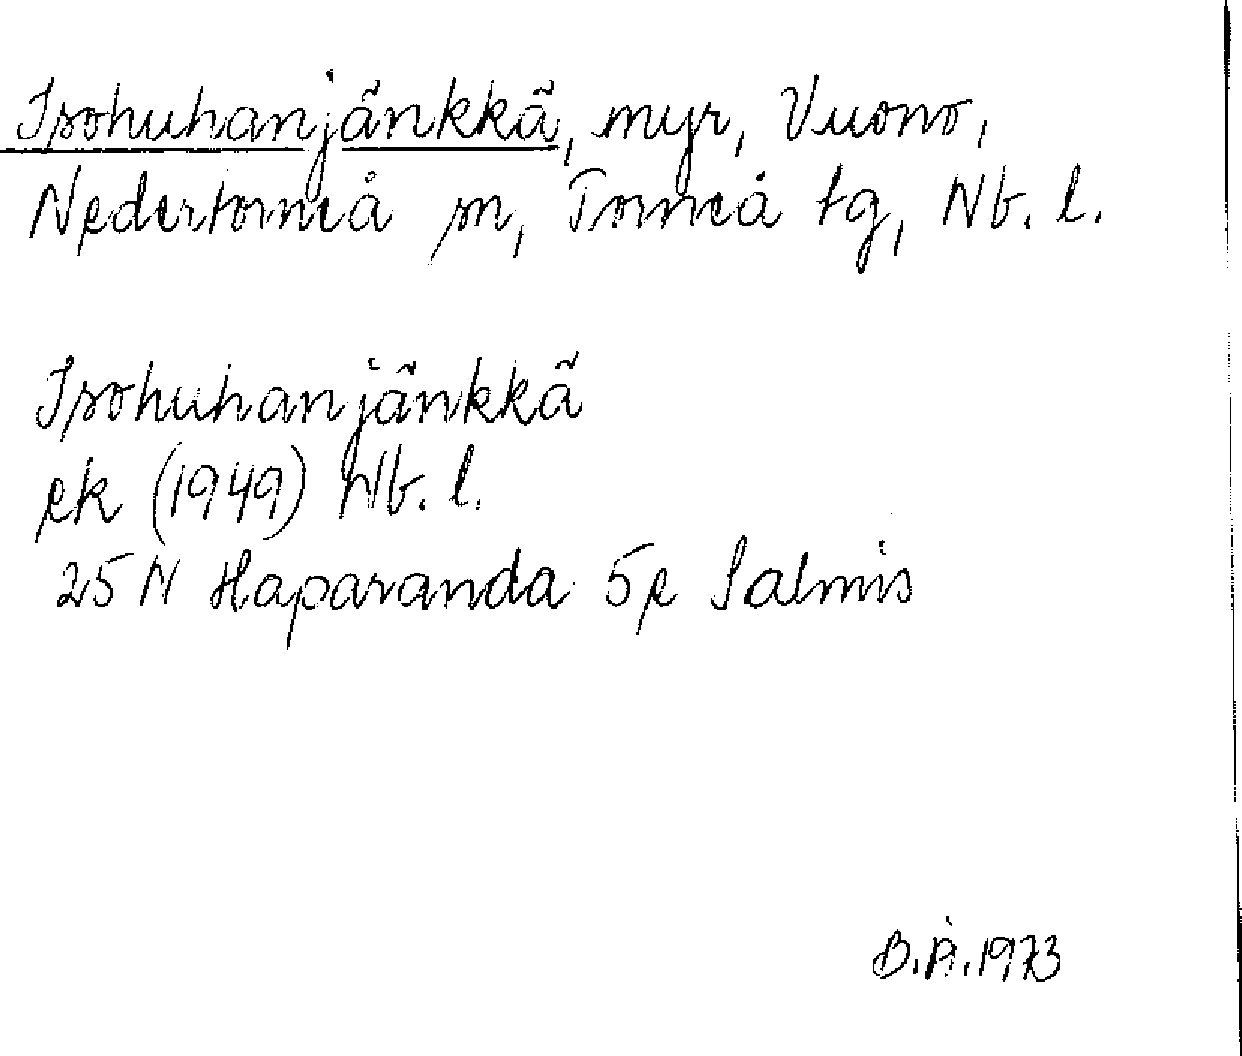 Isohuhanjänkkä, myr, Vuono,
Nedertorneå sn, Torneå tg, Nb. l.
Isohuhanjänkkä
ek (1949) Nb. l.
25 N Haparanda 5e Salmis
B.Å.1973